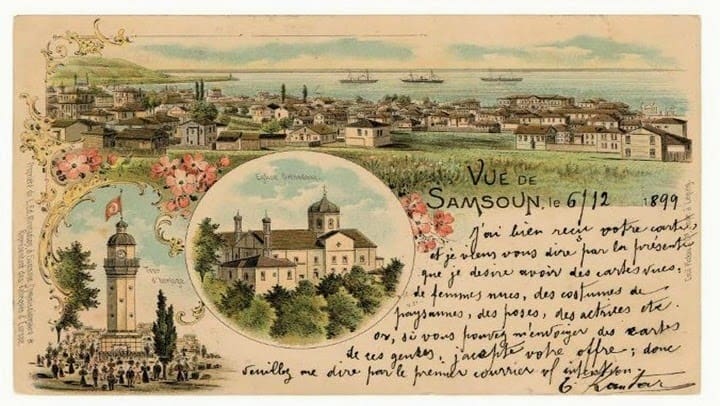 Eglise Orthodoxe.
Tour
d'horloge
VUE DE
SAMSOUN, le 6/12 1899
J'ai bien reçu votre carte,
et je viens vous dire par la présente
que je desire avoir des cartes vues,
de femmes nues, des costumes de
paysannes, des poses, des actrices etc.
or, si vous pouvez m'envoyer des cartes
de ces genres, j'accepte votre offre; donc
veuillez me dire par le premier courrier vos intention.